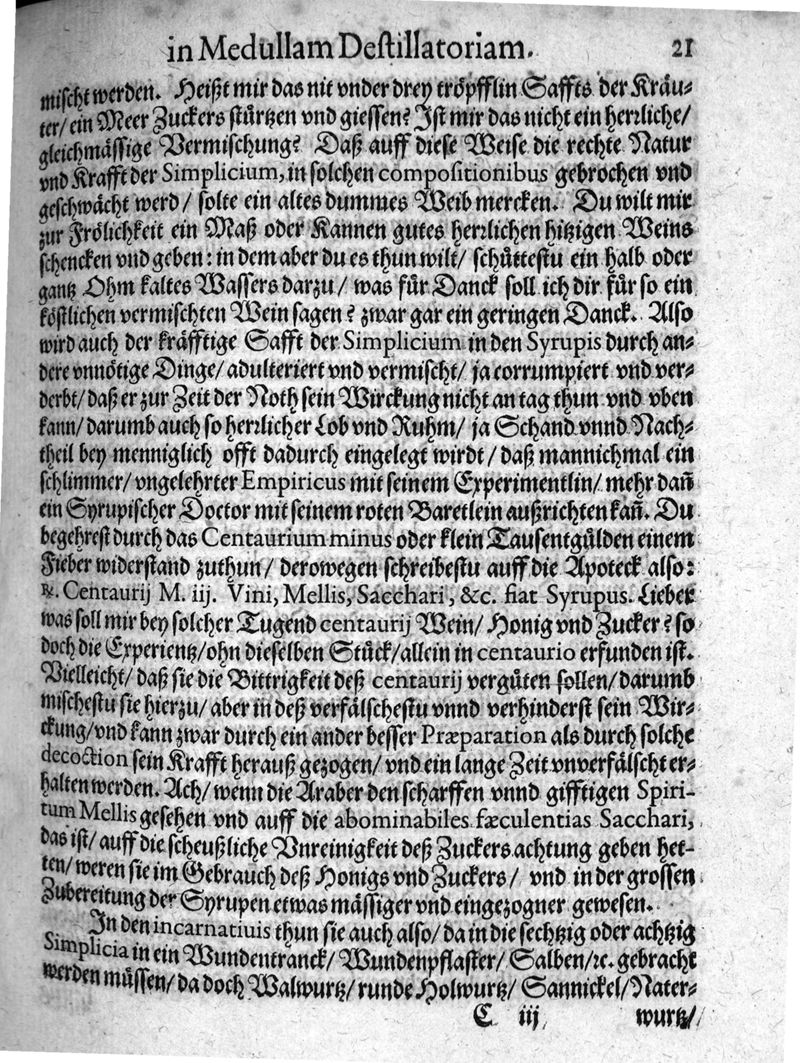 in Medullam Destillatoriam. 21
mischt werden. Heißt mir das nit vnder drey tröpfflin Saffts der Kräu-
ter/ ein Meer Zuckers stürtzen vnd giessen? Ist mir das nicht ein herrliche/
gleichmässige Vermischung? Daß auff diese Weise die rechte Natur
vnd Krafft der Simplicium, in solchen compositionibus gebrochen vnd
geschwächt werd/ solte ein altes dummes Weib mercken. Du wilt mir
zur Frölichkeit ein Maß oder Kannen gutes herrlichen hitzigen Weins
schencken vnd geben: in dem aber du es thun wilt/ schüttestu ein halb oder
gantz Ohm kaltes Wassers darzu/ was für Danck soll ich dir für so ein
köstlichen vermischten Wein sagen? zwar gar ein geringen Danck. Also
wird auch der kräfftige Safft der Simplicium in den Syrupis durch an-
dere vnnötige Dinge/ adulteriert vnd vermischt/ ja corrumpiert vnd ver-
derbt/ daß er zur Zeit der Noth sein Wirckung nicht an tag thun vnd vben
kann/ darumb auch so herrlicher Lob vnd Ruhm/ ja Schand vnnd Nach-
theil bey menniglich offt dadurch eingelegt wirdt/ daß mannichmal ein
schlimmer/ vngelehrter Empiricus mit seinem Experimentlin/ mehr dañ
ein Syrupischer Doctor mit seinem roten Baretlein außrichten kañ. Du
begehrest durch das Centaurium minus oder klein Tausentgülden einem
Fieber widerstand zuthun/ derowegen schreibestu auff die Apoteck also:
℞. Centaurij M. iij. Vini, Mellis, Sacchari, &c. fiat Syrupus. Lieber
was soll mir bey solcher Tugend centaurij Wein/ Honig vnd Zucker? so
doch die Experientz/ ohn dieselben Stück/ allein in centaurio erfunden ist.
Vielleicht/ daß sie die Bittrigkeit deß centaurij vergüten sollen/ darumb
mischestu sie hierzu/ aber in deß verfälschestu vnnd verhinderst sein Wir-
ckung/ vnd kann zwar durch ein ander besser Præparation als durch solche
decoction sein Krafft herauß gezogen/ vnd ein lange Zeit vnverfälscht er-
halten werden. Ach/ wenn die Araber den scharffen vnnd gifftigen Spiri-
tum Mellis gesehen vnd auff die abominabiles fæculentias Sacchari,
das ist/ auff die scheußliche Vnreinigkeit deß Zuckers achtung geben het-
ten/ weren sie im Gebrauch deß Honigs vnd Zuckers/ vnd in der grossen
Zubereitung der Syrupen etwas mässiger vnd eingezogner gewesen.
In den incarnatiuis thun sie auch also/ da in die sechtzig oder achtzig
Simplicia in ein Wundentranck/ Wundenpflaster/ Salben/ ꝛc. gebracht
werden müssen/ da doch Walwurtz/ runde Holwurtz/ Sannickel/ Nater-
C iij wurtz/